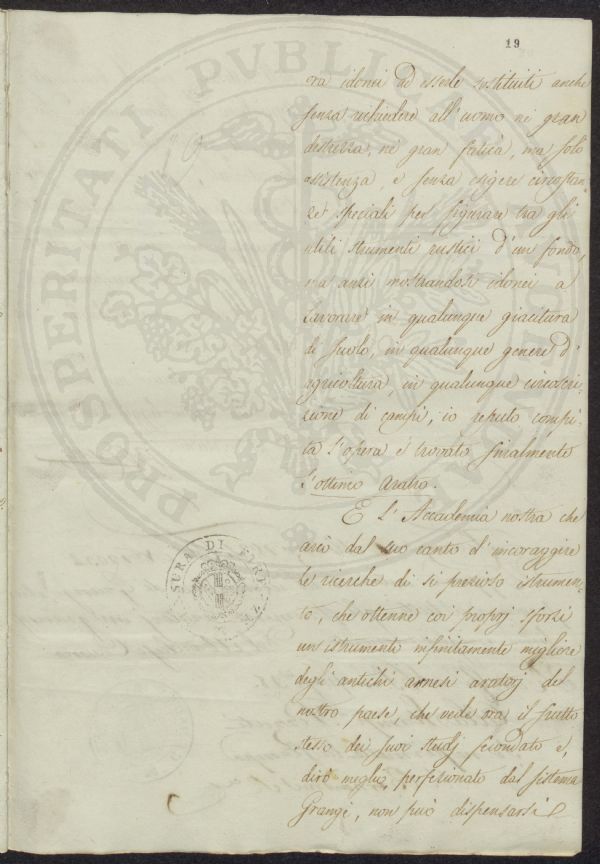 19
ora idonei ad essele sostituiti anche
senza richiedere all'uomo nè gran
destrezza, nè gran fatica, ma solo
assistenza, e senza esigere circostan-
ze speciali per figurare tra gli
utili strumenti rustici d'un fondo,
ma anzi mostrandosi idonei a
lavorare in qualunque giacitura
di suolo, in qualunque genere d'
agricoltura, in qualunque circoscri-
zione di campi, io reputo compi-
ta l'opera e trovato finalmente
l'ottimo aratro.
E l'Accademia nostra che
dal suo canto d'incoraggire
le ricerche di sì prezioso istrumen-
to, che ottenne coi proprj sforzi
un istrumento infinitamente migliore
degli antichi arnesi aratorj del
nostro paese, che vede ora il frutto
stesso dei suoi studj fecondato e,
dirò meglio, perfezionato dal sistema
Grangé, non può dispensarsi
PROSPERITATI PUBLICAE AUGENDAE
SURA DI FIRENZE